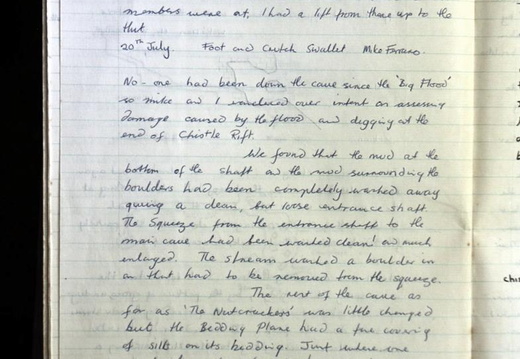 members were at, I had a lift from there up to the
Hut
20th July. Foot and Crutch Swallet Mike Farrano.
No-one had been down the cave since the 'Big Flood'
so mike and I ventured over intent on assessing
damage caused by the flood and digging at the
end of Christle Rift.
We found that the mud at the
bottom of the shaft and the mud surrounding the
boulders had been completely washed away
giving a clean, but loose entrance shaft.
The Squeeze from the entrance shaft to the
main cave had been washed clean! and much
enlarged. The stream washed a boulder in
an that had to be removed from the squeeze.
The rest of the cave as
far as 'The Nutcrackers' was little changed
but the Bedding Plane had a fine covering
of silt on its bedding. Just where one